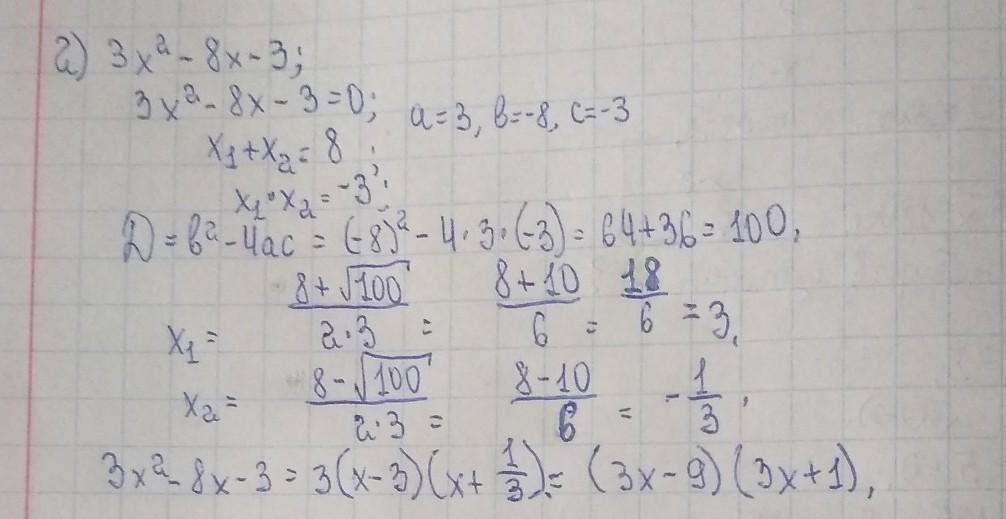 г) 3x² - 8x - 3;
3x² - 8x - 3 = 0; a=3, b=-8, c=-3
x₁ + x₂ = 8 ;
x₁ · x₂ = -3 ;
D = b² - 4ac = (-8)² - 4·3·(-3) = 64 + 36 = 100,
x₁ = (8 + √100)/(2·3) = (8 + 10)/6 = 18/6 = 3,
x₂ = (8 - √100)/(2·3) = (8 - 10)/6 = -1/3,
3x² - 8x - 3 = 3(x - 3)(x + 1/3) = (3x - 9)(3x + 1),